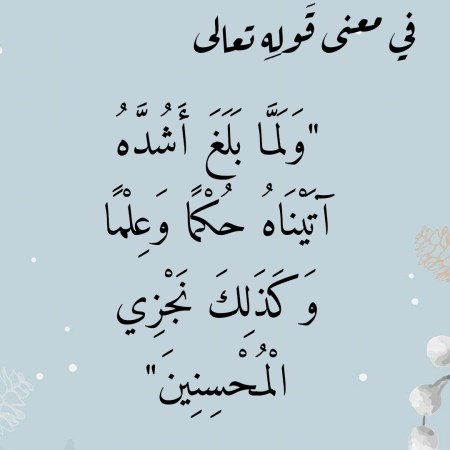 في معنى قَولِهِ تعالى
"وَلَمَّا بَلَغَ أَشُدَّهُ
آتَيْنَاهُ حُكْمًا وَعِلْمًا
وَكَذَلِكَ نَجْزِي
الْمُحْسِنِينَ"